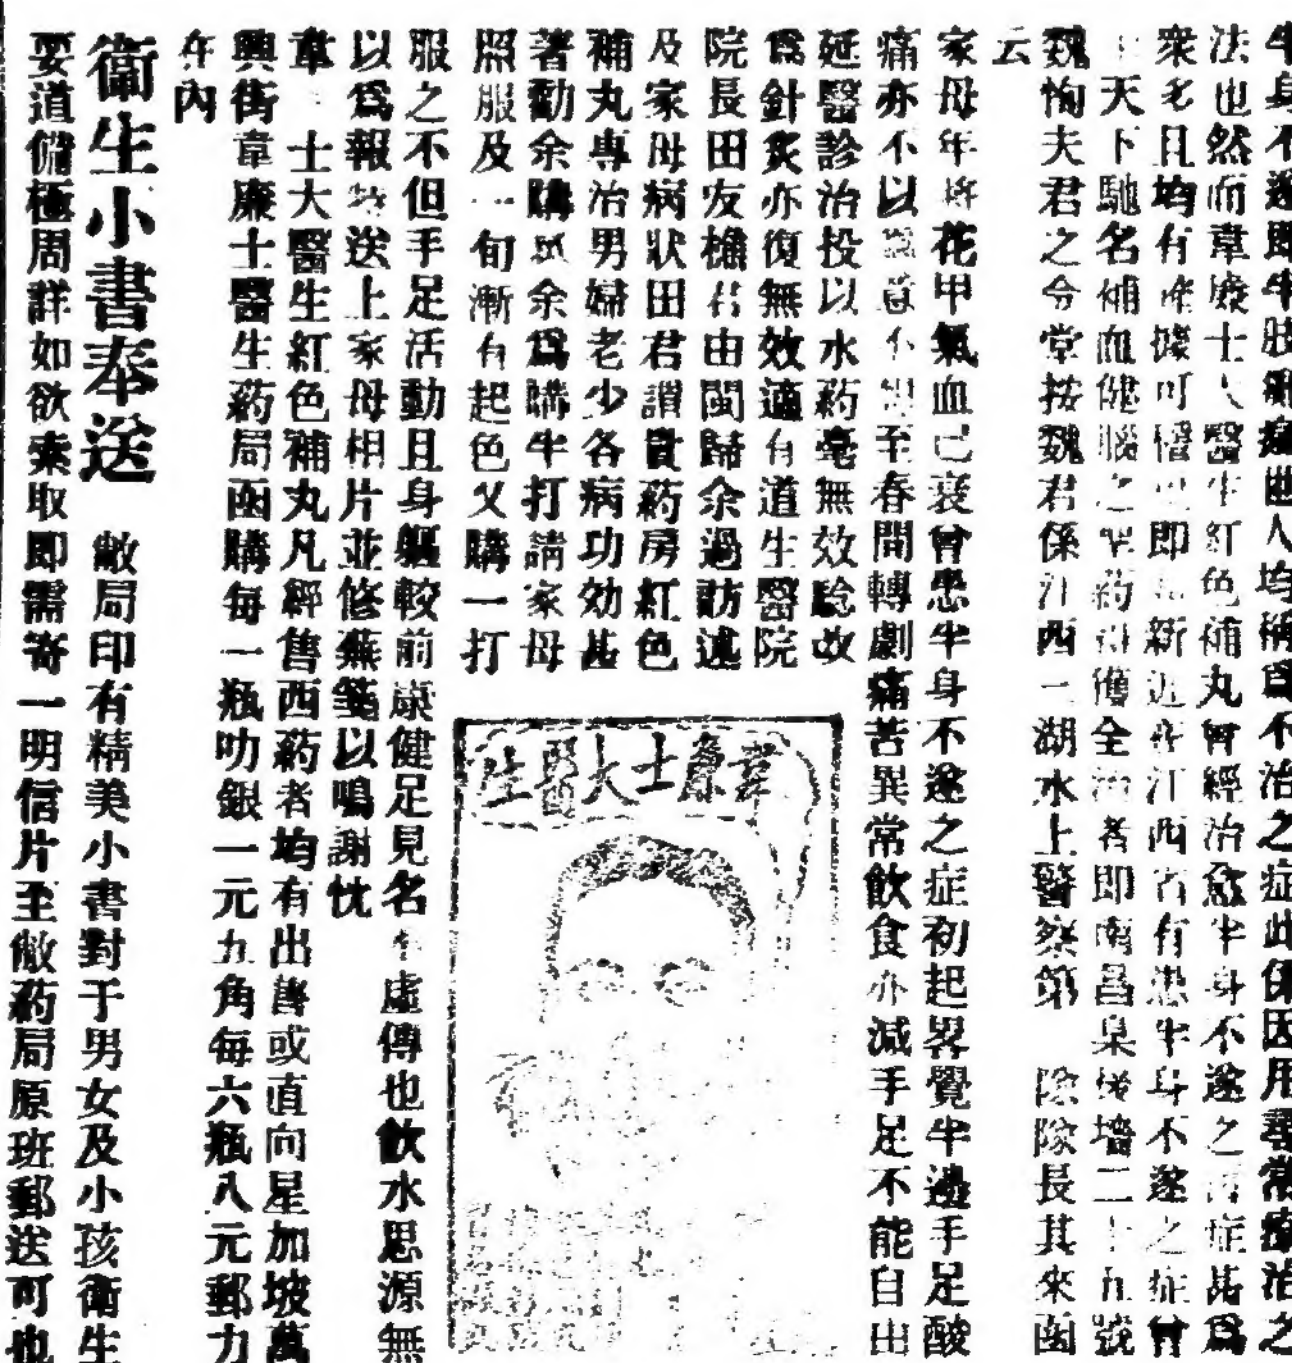 半身不遂即半肢痲痺世人均稱爲不治之症此係因用尋常療治之
法也然而韋廉士大醫生紅色補丸曾經治愈半身不遂之症甚爲
衆多且均有確據可證即新近在江西省有患半身不遂之症曾
天下馳名補血健腦之聖药得獲全治者即南昌臬後墻二十五號
魏恂夫君之令堂按魏君係江西湖水上警察第 隊隊長其來函
云
家母年將花甲氣血已衰曾患半身不遂之症初起畧覺半邊手足酸
痛亦不以爲意不料至春間轉劇痛苦異常飲食亦減手足不能自由
延醫診治投以水药毫無效驗故
爲針炙亦復無效適有道生醫院
院長田友樵君由閩歸余過訪述
及家母病狀田君讃貴药房紅色
補丸專治男婦老少各病功効甚
著勸余購試余爲購半打請家母
照服及一旬漸有起色又購一打
服之不但手足活動且身軀較前康健足見名不虛傳也飲水思源無
以爲報特送上家母相片並修蕪箋以鳴謝忱
韋廉士大醫生紅色補丸凡經售西药者均有出售或直向星加坡萬
興街韋廉士醫生药局函購每一瓶叻銀一元五角每六瓶八元郵力
在內
衞生小書奉送 敝局印有精美小書對于男女及小孩衞生
要道備極周詳如欲索取即需寄一明信片至敝药局原班郵送可也
韋廉士大醫生